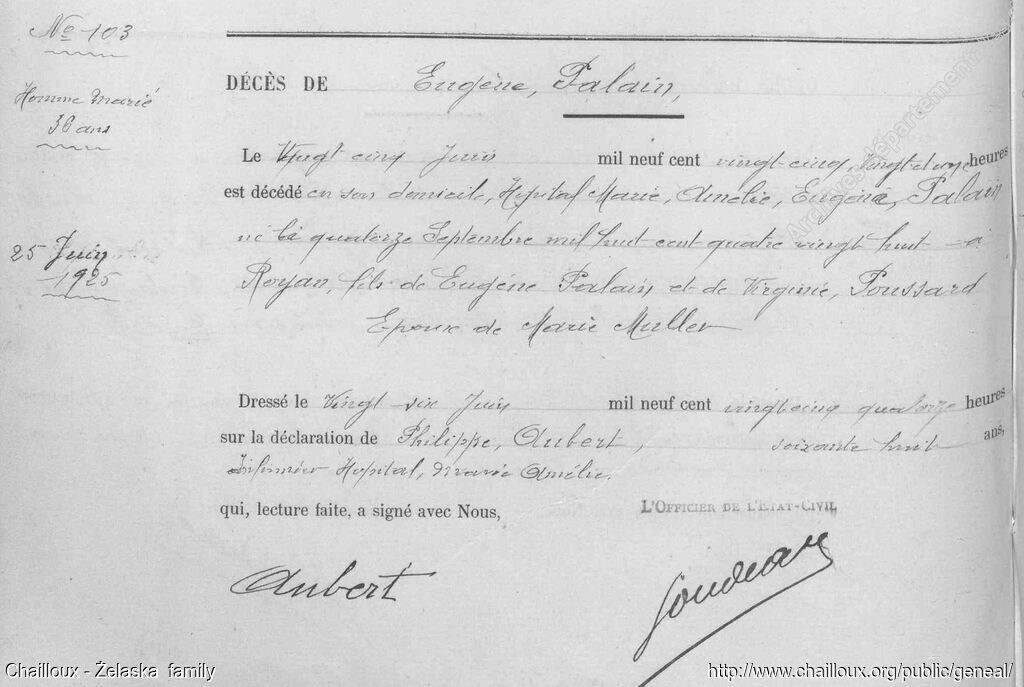 No 103
Homme marié
36 ans
25 Juin
1925
DÉCÈS DE Eugène, Palain,
Le Vingt cinq Juin mil neuf cent vingt-cinq, vingt et une heures
est décédé en son domicile, Hopital Marie, Amélie, Eugène, Palain
né le quatorze Septembre mil huit cent quatre vingt huit à
Royan, fils de Eugène Palain, et de Virginie, Poussard
Epoux de Marie Muller
Dressé le Vingt six Juin mil neuf cent vingt cinq quatorze heures
sur la déclaration de Philippe, Aubert, soixante huit ans,
Infirmier Hopital, Marie Amélie.
qui, lecture faite, a signé avec Nous,
L'OFFICIER DE L'ETAT-CIVIL
Aubert
Archives Départementa
Chailloux - Żelaska family
http://www.chailloux.org/public/geneal/